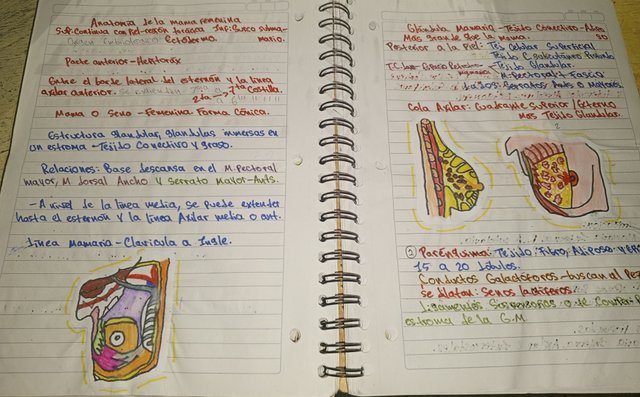 Anatomía de la mama femenina
Sup: Continua con Piel-región torácica Inf: Surco submamario.
Origen Embriológico: Ectodermo.
Parte anterior-Hemitorax
Entre el borde lateral del esternón y la línea
axilar anterior. 2ta - 7ta costilla.
Mama o Seno - Femenina: Forma Cónica.
Estructura glandular, glandulas inmersas en
un estroma - Tejido Conectivo y graso.
Relaciones: Base descansa en el M. Pectoral
mayor, M dorsal Ancho y Serrato Mayor-Ants.
- A nivel de la línea media, se puede extender
hasta el esternón y la línea Axilar media o ant.
Línea Mamaria - Clavicula a Ingle.
Glándula Mamaria - Tejido Conectivo
Mas grande que la mama.
Posterior a la Piel: Tej Celular Superficial
Tejido Glandular.
M. Pectoral
Lados: Serratos Ants o mayores.
Cola Axilar: Cuadrante Superior / Externo
Mas Tejido Glandular.
② Parénquima: Tejido: Fibro, Adiposo
15 a 20 lóbulos.
Conductos Galactóforos - buscan al
se dilatan: Senos lactíferos
Ligamentos Suspensorios o de
estroma de la G.M